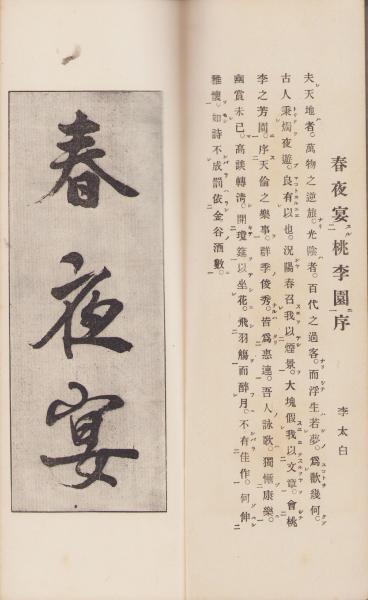 春夜宴桃李園序
李太白
夫天地者。萬物之逆旅。光陰者。百代之過客。而浮生若夢。爲歡幾何。
古人秉燭夜遊。良有以也。況陽春召我以煙景。大塊假我以文章。會桃
李之芳園。序天倫之樂事。群季俊秀。皆爲惠連。吾人詠歌。獨慚康樂。
幽賞未已。高談轉淸。開瓊筵以坐花。飛羽觴而醉月。不有佳作。何伸
雅懷。如詩不成。罰依金谷酒數。
春夜宴